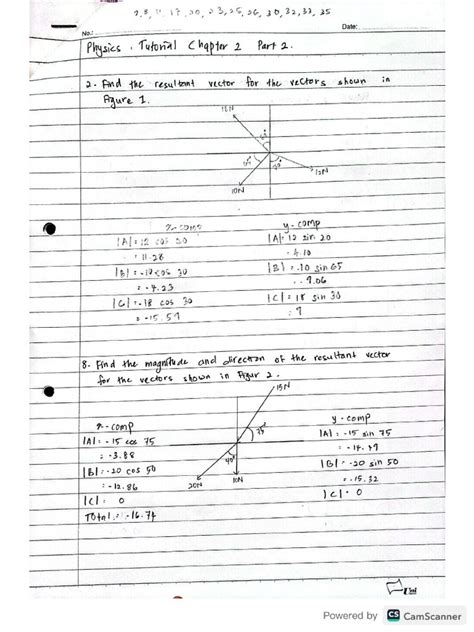 No.:
Date:
Physics . Tutorial Chapter 2 Part 2.
2. Find the resultant vector for the vectors shown in
Figure 1.
12N
10N
x-comp
y-comp
|A| = 12 cos 20
|A| = 12 sin 20
= 11.28
= 4.10
|B| = -10 sin 65
= -4.23
= -9.06
|C| = -18 cos 30
|C| = 18 sin 30
= -15.59
= 9
8. Find the magnitude and direction of the resultant vector
for the vectors shown in Figur 2.
15N
x-comp
y-comp
75°
|A| = -15 cos 75
|A| = -15 sin 75
= -3.88
= -14.49
40°
|B| = -20 cos 50
|B| = -20 sin 50
20N
10N
= -12.86
= -15.32
|C| = 0
|C| = 0
Total = -16.74
Powered by CS CamScanner